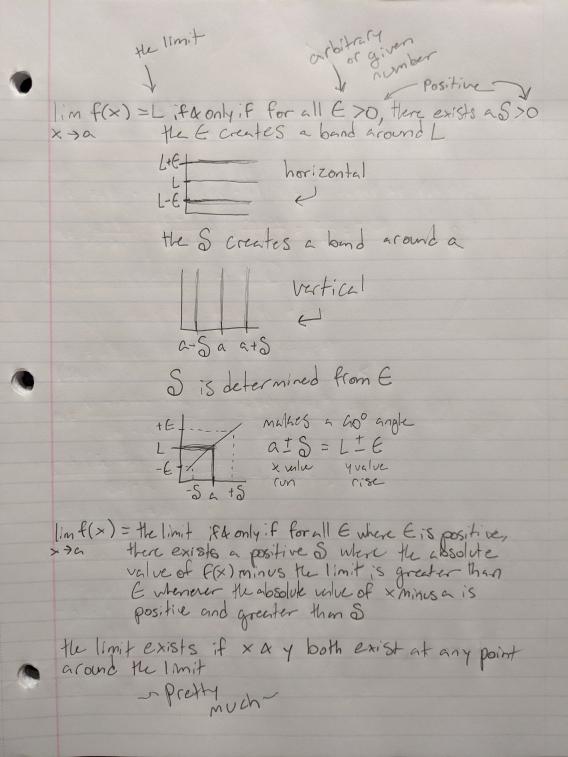 the limit
arbitrary
or given
number
Positive
lim f(x) = L if & only if for all ε > 0, there exists a δ > 0
x → a
the ε creates a band around L
L+ε
L
L-ε
horizontal
the δ creates a band around a
vertical
a-δ a a+δ
δ is determined from ε
+ε
L
-ε
-δ a +δ
makes a 90° angle
a ± δ = L ± ε
x value y value
run rise
lim f(x) = the limit if & only if for all ε where ε is positive,
x → a there exists a positive δ where the absolute
value of f(x) minus the limit is greater than
ε whenever the absolute value of x minus a is
positive and greater than δ
the limit exists if x & y both exist at any point
around the limit
~ Pretty
much ~